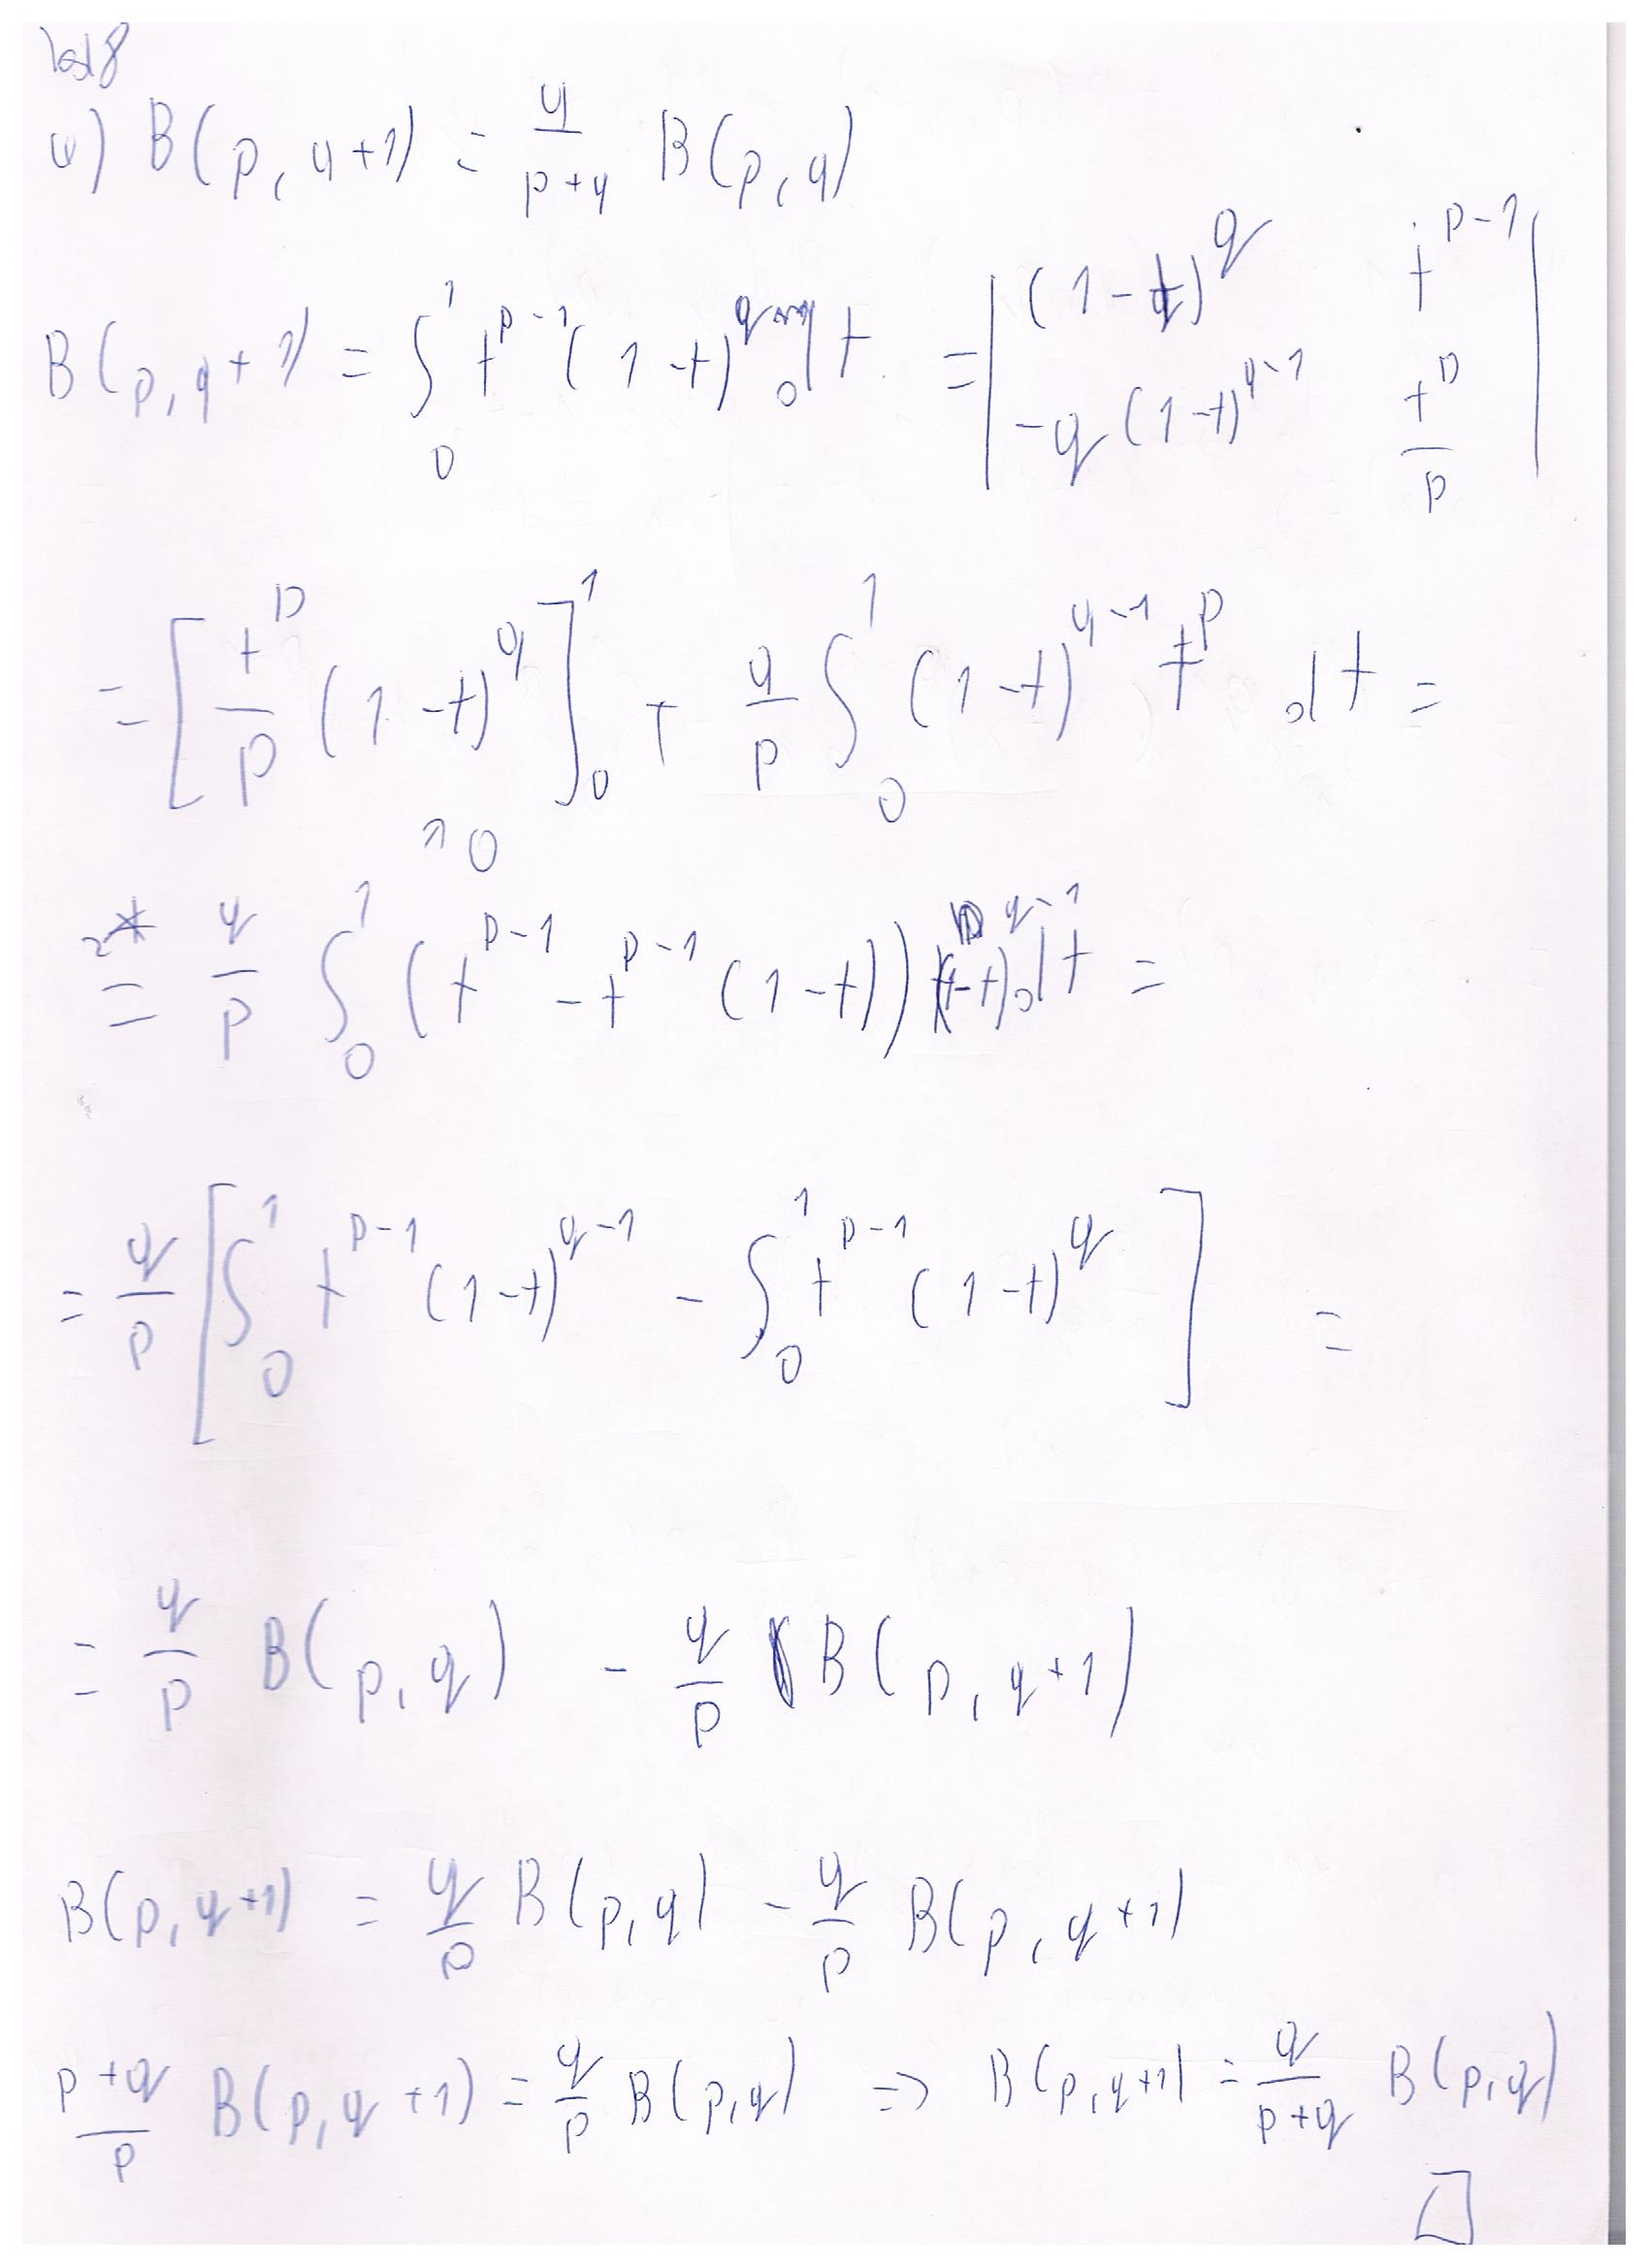 4) B(p, q+1) = q/(p+q) B(p, q)
B(p, q+1) = ∫₀¹ t^(p-1) (1-t)^q dt = | (1-t)^q   t^(p-1) |
| -q(1-t)^(q-1)   t^p/p |
= [ t^p/p (1-t)^q ]₀¹ + q/p ∫₀¹ (1-t)^(q-1) t^p dt =
0
=* q/p ∫₀¹ (t^(p-1) - t^(p-1) (1-t)) (1-t)^(q-1) dt =
= q/p [ ∫₀¹ t^(p-1) (1-t)^(q-1) - ∫₀¹ t^(p-1) (1-t)^q ] =
= q/p B(p, q) - q/p B(p, q+1)
B(p, q+1) = q/p B(p, q) - q/p B(p, q+1)
(p+q)/p B(p, q+1) = q/p B(p, q) => B(p, q+1) = q/(p+q) B(p, q)
□